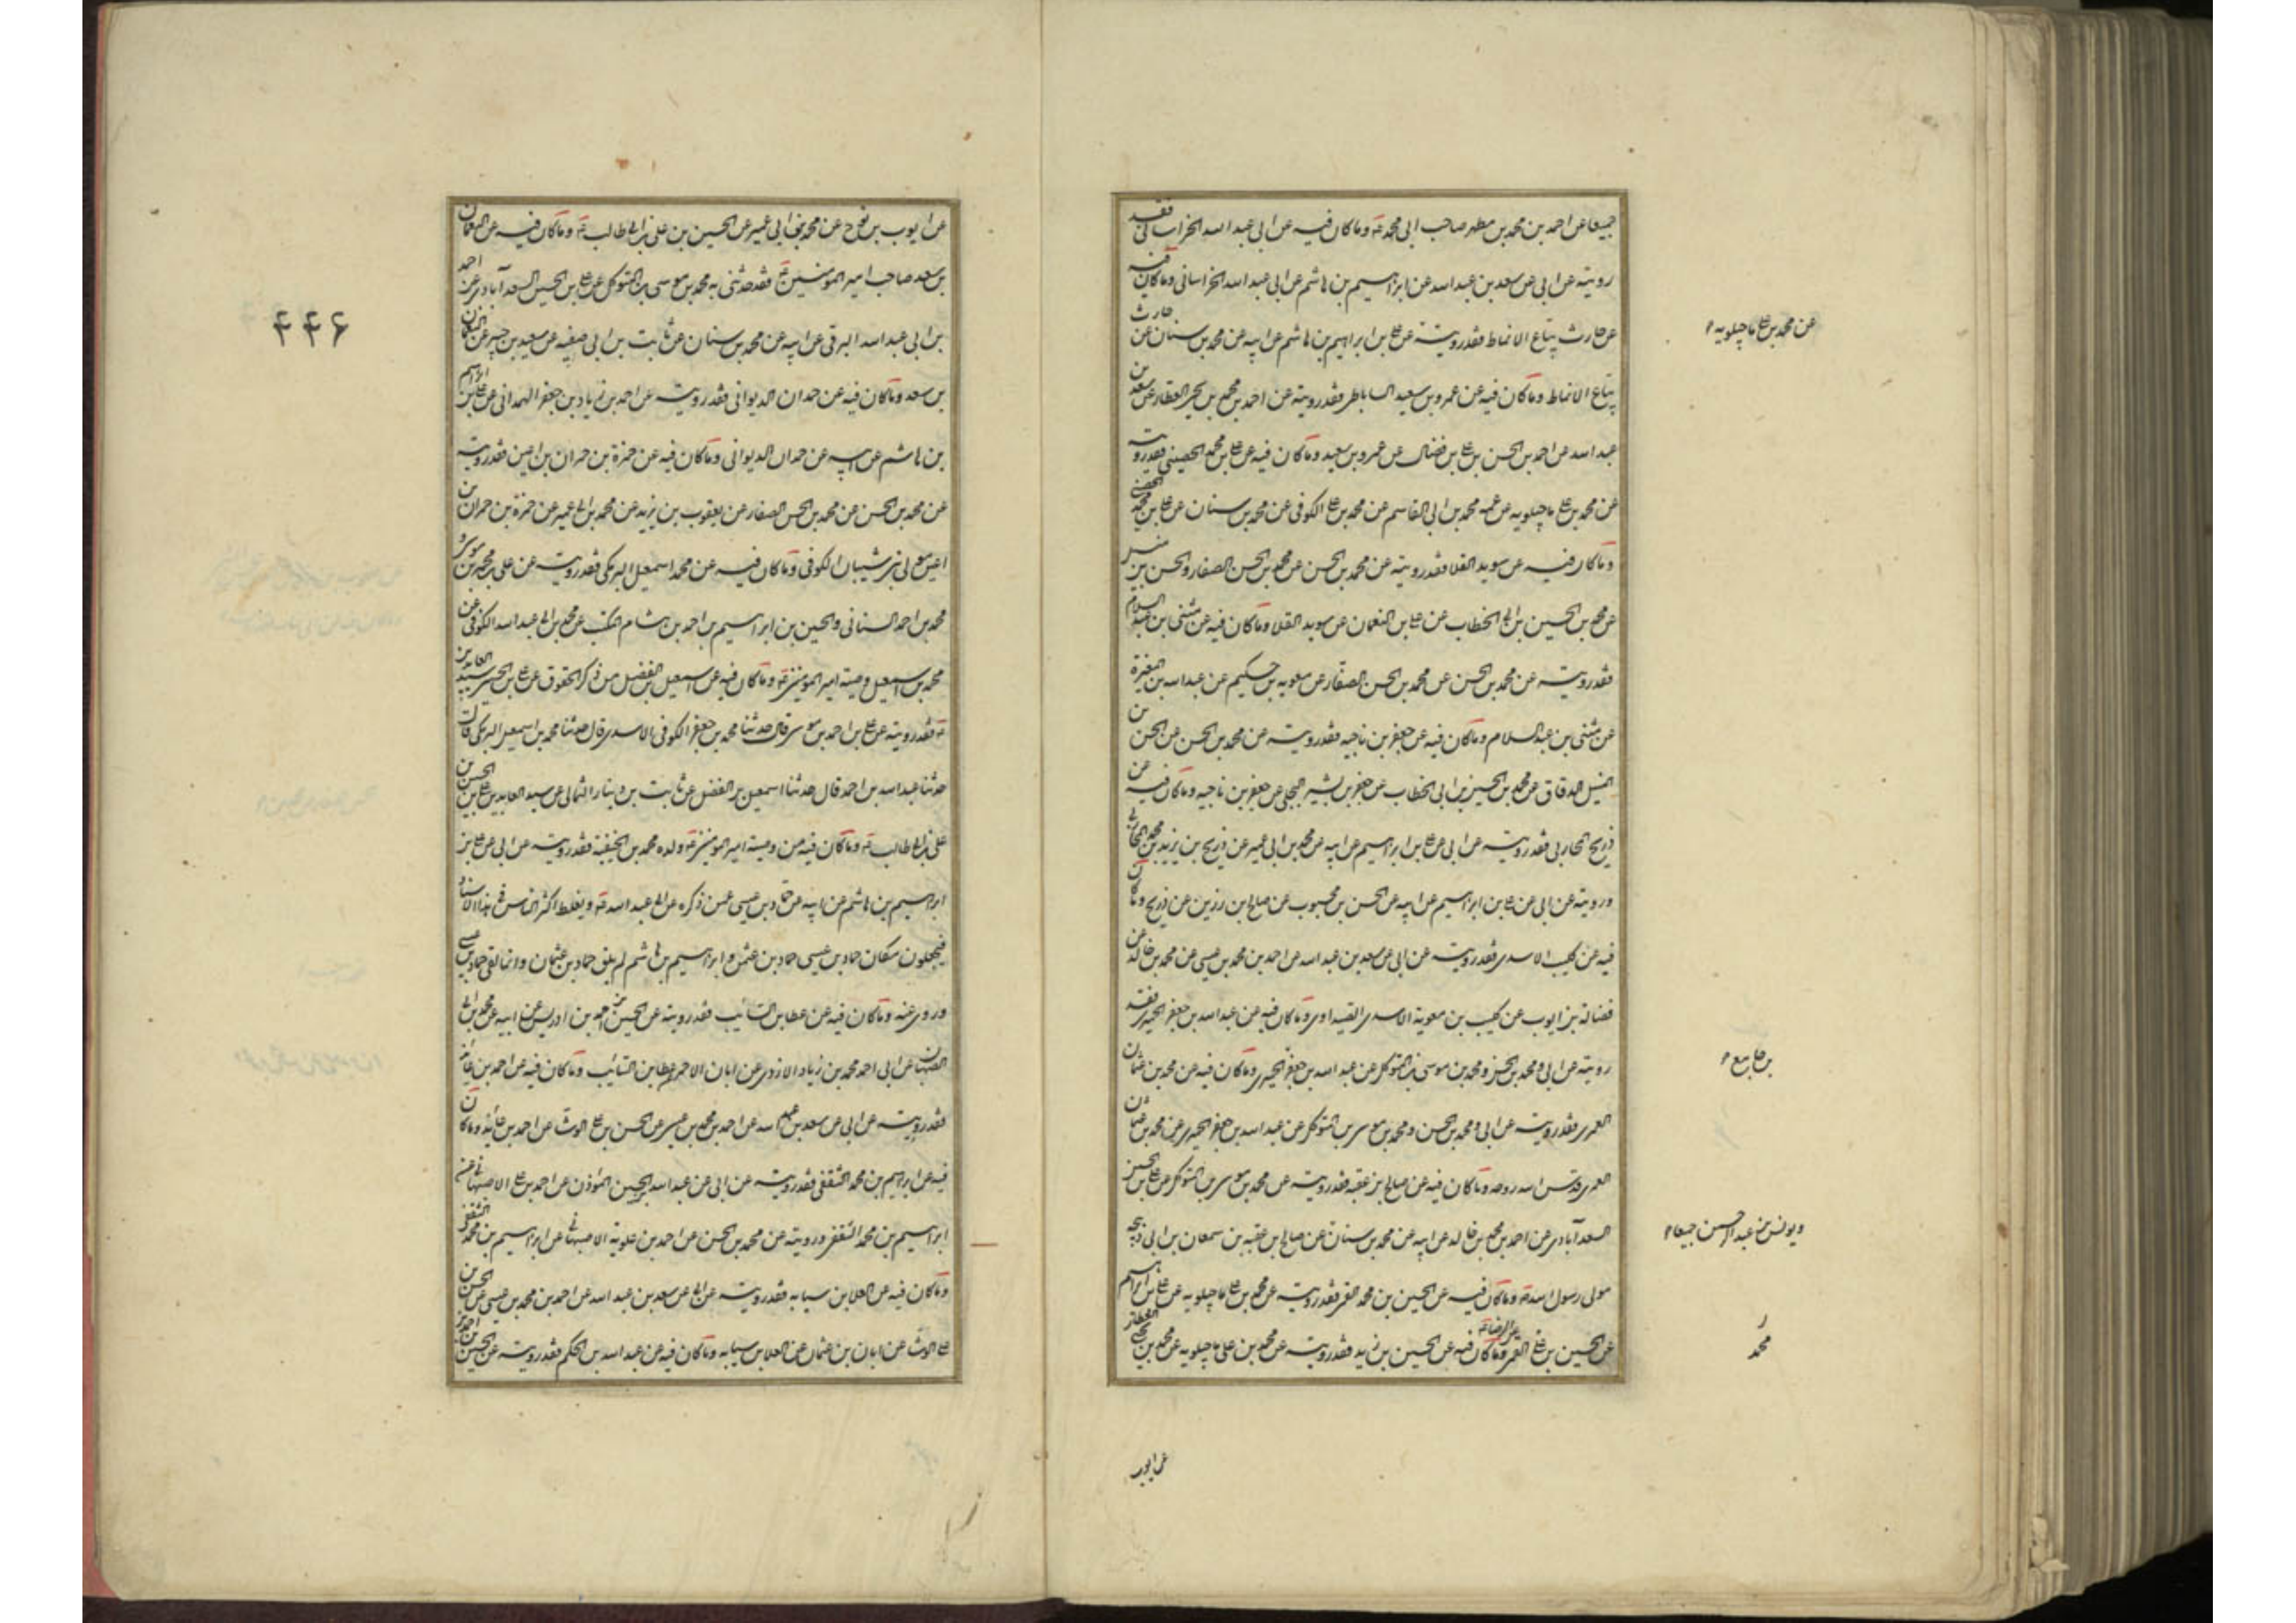 جميعا عن احمد بن محمد بن مطهر صاحب ابى محمد ع وما كان فيه عن ابى عبد الله الخراسانى فقد
رويته عن ابى عن سعد بن عبد الله عن ابراهيم بن هاشم عن ابى عبد الله الخراسانى وما كان فيه
عن حارث بياع الانماط فقد رويته عن على بن ابراهيم بن هاشم عن ابيه عن محمد بن سنان عن حارث
عن محمد بن على ماجيلويه
بياع الانماط وما كان فيه عن عمرو بن سعيد الساباطى فقد رويته عن احمد بن محمد بن يحيى العطار عن سعد بن
عبد الله عن احمد بن الحسن بن على بن فضال عن عمرو بن سعيد وما كان فيه عن على بن محمد الحصينى فقد رويته
عن محمد بن على ماجيلويه عن عمه محمد بن ابى القاسم عن محمد بن على الكوفى عن محمد بن سنان عن على بن محمد الحضينى
وما كان فيه عن سويد القلا فقد رويته عن محمد بن الحسن عن محمد بن الحسن الصفار والحسن بن متيل
عن محمد بن الحسين بن ابى الخطاب عن على بن النعمان عن سويد القلا وما كان فيه عن مثنى بن عبد السلام
فقد رويته عن محمد بن الحسن عن محمد بن الحسن الصفار عن معوية بن حكيم عن عبد الله بن المغيرة
عن مثنى بن عبد السلام وما كان فيه عن جعفر بن ناجيه فقد رويته عن محمد بن الحسن عن الحسن بن
المتيل الدقاق عن محمد بن الحسين بن ابى الخطاب عن جعفر بن بشير البجلى عن جعفر بن ناجيه وما كان فيه عن
ذريح المحاربى فقد رويته عن ابى عن على بن ابراهيم عن ابيه عن محمد بن ابى عمير عن ذريح بن يزيد بن محمد المحاربى
ورويته عن ابى عن على بن ابراهيم عن ابيه عن الحسن بن محبوب عن صالح ابن رزين عن ذريح وما كان
فيه عن كليب الاسدى فقد رويته عن ابى عن سعد بن عبد الله عن احمد بن محمد بن عيسى عن محمد بن خالد عن
فضالة بن ايوب عن كليب بن معوية الاسدى الصيداوى وما كان فيه عن عبد الله بن جعفر الحميرى فقد
رويته عن ابى ومحمد بن الحسن ومحمد بن موسى بن المتوكل عن عبد الله بن جعفر الحميرى وما كان فيه عن محمد بن عثمان
بن جامع
العمرى فقد رويته عن ابى ومحمد بن الحسن ومحمد بن موسى بن المتوكل عن عبد الله بن جعفر الحميرى عن محمد بن عثمان
العمرى قدس الله روحه وما كان فيه عن صالح بن عقبه فقد رويته عن محمد بن موسى بن المتوكل عن على بن الحسين
السعدآبادى عن احمد بن محمد بن خالد عن ابيه عن محمد بن سنان عن صالح بن عقبه بن سمعان بن ابى ذبيحه
ويونس بن عبد الرحمن جميعا
مولى رسول الله ص وما كان فيه عن الحسين بن محمد القمى فقد رويته عن محمد بن على ماجيلويه عن على بن ابراهيم
عن الحسين بن على القمى عن الرضا ع وما كان فيه عن الحسين بن زيد فقد رويته عن محمد بن على ماجيلويه عن محمد بن يحيى العطار
محمد
عن ايوب
عن ايوب بن نوح عن محمد بن ابى عمير عن الحسين بن على بن ابى طالب ع وما كان فيه عن النعمان
بن سعد صاحب امير المومنين ع فقد حدثنى به محمد بن موسى بن المتوكل عن على بن الحسين السعدآبادى عن احمد
بن ابى عبد الله البرقى عن ابيه عن محمد بن سنان عن ثابت بن ابى صفيه عن سعيد بن جبير عن النعمان
۴۴۶
بن سعد وما كان فيه عن حمدان الديوانى فقد رويته عن احمد بن زياد بن جعفر الهمدانى عن على بن ابراهيم
بن هاشم عن ابيه عن حمدان الديوانى وما كان فيه عن حمزة بن حمران بن اعين فقد رويته
عن محمد بن الحسن عن محمد بن الحسن الصفار عن يعقوب بن يزيد عن محمد بن ابى عمير عن حمزة بن حمران بن
اعين مولى بنى شيبان الكوفى وما كان فيه عن محمد اسمعيل البرمكى فقد رويته عن على بن محمد بن موسى و
محمد بن احمد السنانى والحسين بن ابراهيم بن احمد بن هشام المكتب عن محمد بن ابى عبد الله الكوفى عن
محمد بن اسمعيل وصيته امير المومنين ع وما كان فيه عن اسمعيل بن الفضل من ذكر الحقوق عن على بن الحسين سيد العابدين
ع فقد رويته عن على بن احمد بن موسى قال حدثنا محمد بن جعفر الكوفى الاسدى قال حدثنا محمد بن اسمعيل البرمكى قال
حدثنا عبد الله بن احمد قال حدثنا اسمعيل بن الفضل عن ثابت بن دينار الثمالى عن سيد العابدين على بن الحسين بن
على بن ابى طالب ع وما كان فيه من وصيته امير المومنين ع ولده محمد بن الحنفية فقد رويته عن ابى عن على بن
ابراهيم بن هاشم عن ابيه عن حماد بن عيسى عمن ذكره عن ابى عبد الله ع ويغلط اكثر الناس فى هذا الاسناد
فيجعلون مكان حماد بن عيسى حماد بن عثمن وابراهيم بن هاشم لم يلق حماد بن عثمان وانما لقى حماد بن عيسى
وروى عنه وما كان فيه عن عطا بن السائب فقد رويته عن الحسين بن احمد بن ادريس عن ابيه عن محمد بن ابى
الصهبان عن ابى احمد محمد بن زياد الازدى عن ابان الاحمر عن عطا بن السائب وما كان فيه عن احمد بن عائذ
فقد رويته عن ابى عن سعد بن عبد الله عن احمد بن محمد بن عيسى عن الحسن بن على الوشا عن احمد بن عائذ وما كان
فيه عن ابراهيم بن محمد الثقفى فقد رويته عن ابى عن عبد الله بن الحسين المؤذن عن احمد بن على الاصبهانى عن
ابراهيم بن محمد الثقفى ورويته عن محمد بن الحسن عن احمد بن علوية الاصبهانى عن ابراهيم بن محمد الثقفى
وما كان فيه عن العلا بن سيابه فقد رويته عن ابى عن سعد بن عبد الله عن احمد بن محمد بن عيسى عن الحسن بن
على الوشا عن ابان بن عثمان عن العلا بن سيابه وما كان فيه عن عبد الله بن الحكم فقد رويته عن الحسين بن احمد بن